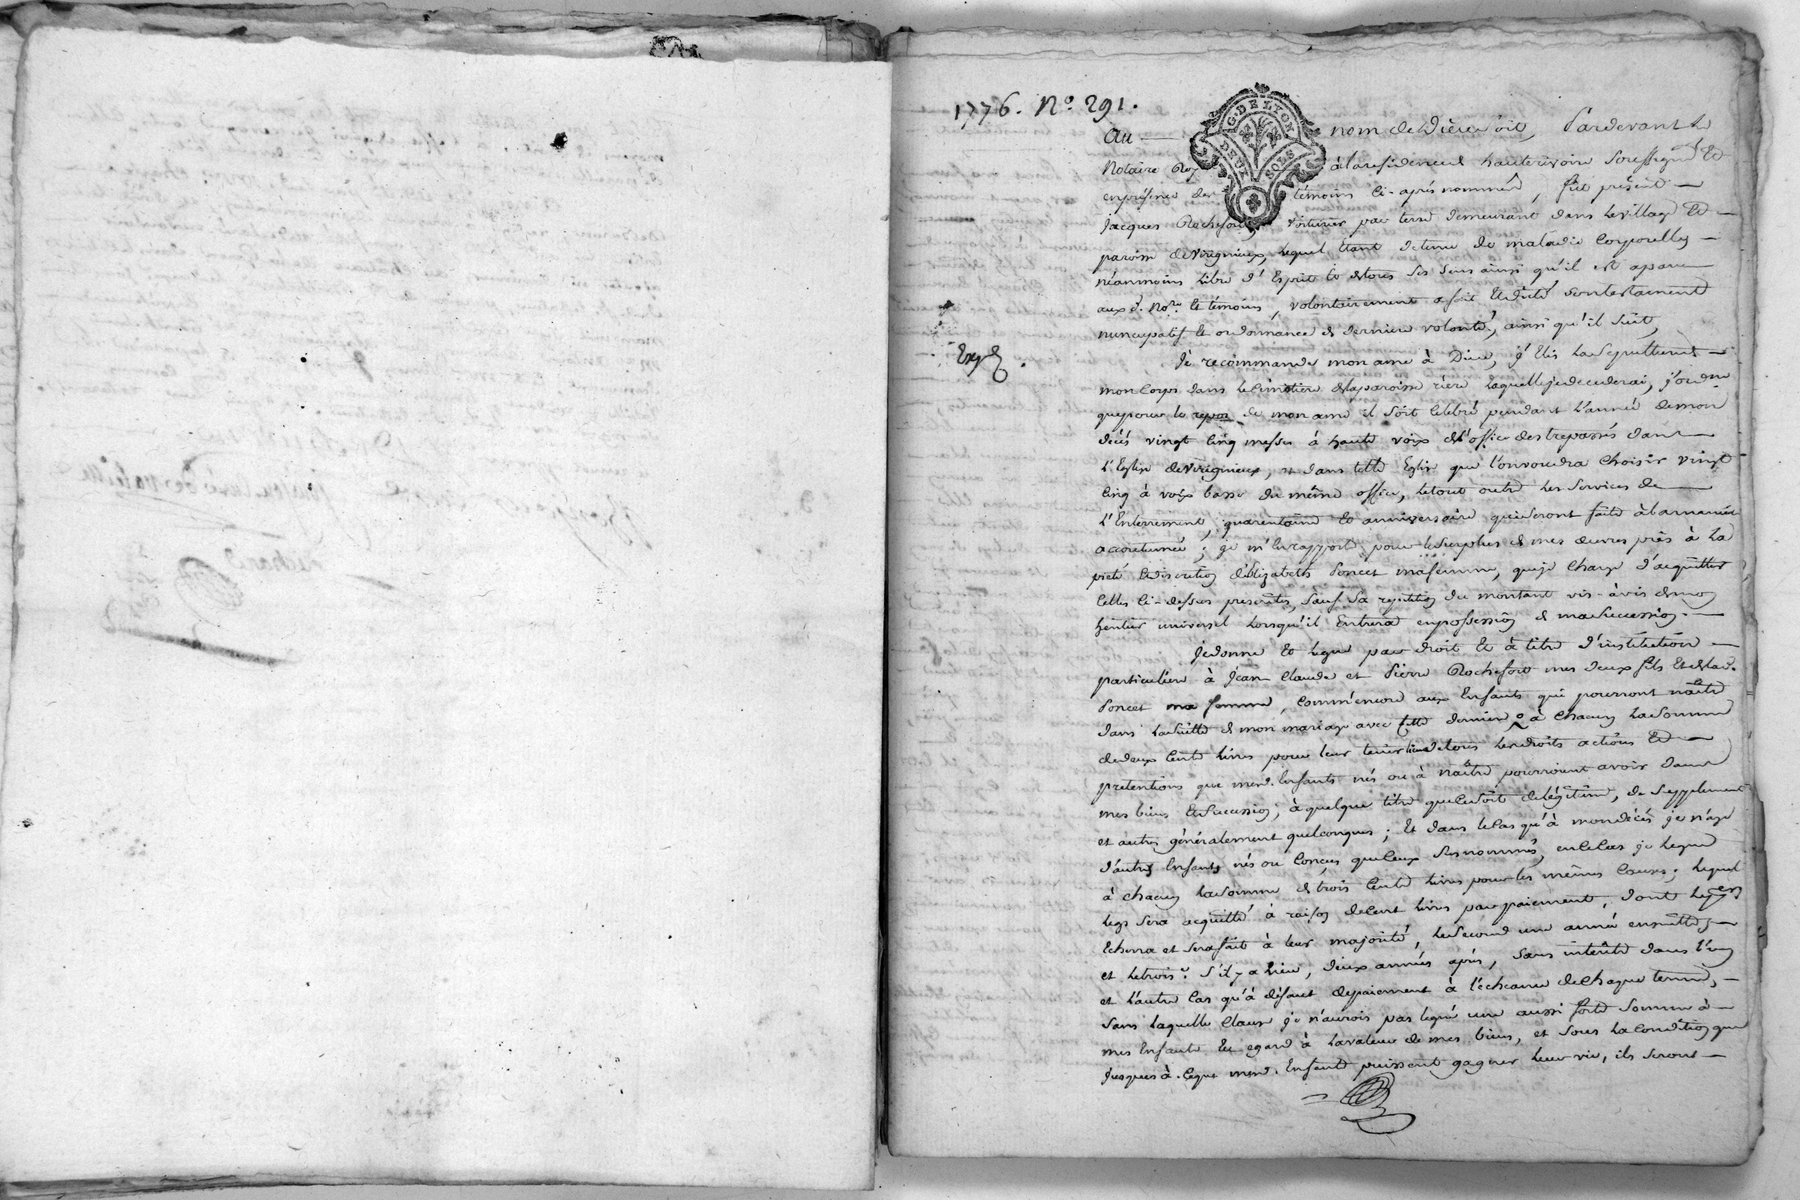 1776. N.º 291.
G. DE LYON
DEUX SOLS
Au nom de Dieu soit, Pardevant le
Notaire Roy à la residence d'hauterivoire soussigné Et
en présence des témoins ci-après nommés, fut présent
Jacques Rochefort, voiturier par terre demeurant dans le village Et
paroisse de Virignieux, lequel étant detenu de maladie corporelle,
néanmoins libre d'Esprit Et de tous ses sens ainsi qu'il est aparu
aux d. No.re Et témoins, volontairement a fait Et dicté son testament
nuncupatif Et ordonnance de derniere volonté, ainsi qu'il suit,
Exp.é
Je recommande mon ame à Dieu, j'Elis la sepulture de
mon Corps dans le Cimetiere de la paroisse riere laquelle je decederai, j'ordne
que pour le repos de mon ame il soit celebré pendant l'année de mon
décès vingt cinq messes à haute voix de l'office des trepassés dans
l'Eglise de Virignieux, et dans telle Eglise que l'on voudra choisir vingt
cinq à voix basse du même office, le tout outre les services de
l'Enterrement, quarantaine Et anniversaire qui seront faits à la maniere
accoutumée; je m'en rapporte pour le surplus de mes œuvres pies à la
pieté Et discretion d'Elizabeth Poncet ma femme, que je charge d'acquitter
celles ci-dessus prescrites, sauf sa repetition du montant vis-à-vis de mon
heritier universel lorsqu'il Entrera en possession de ma succession.
Je donne Et legue par droit Et à titre d'institution
particuliere à Jean Claude et Pierre Rochefort mes deux fils Et de lad.
Poncet ma femme, comm'encore aux Enfants qui pourront naître
dans la suitte de mon mariage avec cette derniere à chacun la somme
de deux cents livres pour leur tenir lieu de tous les droits actions Et
pretentions que mesd. Enfants nés ou à naître pourroient avoir dans
mes biens Et succession, à quelque titre que ce soit de légitime, de supplement
et autres généralement quelconques; Et dans le cas qu'à mon décès je n'aye
d'autres Enfants nés ou conçus que ceux susnommés, en ce cas je legue
à chacun la somme de trois cents livres pour les mêmes causes; lequel
legs sera acquitté à raison de cent livres par paiement, dont le p.er
Echerra et sera fait à leur majorité, le second une année ensuitte,
et le trois.e s'il y a lieu, deux années après, sans intérêts dans l'un
et l'autre cas qu'à défaut de paiement à l'échéance de chaque terme,
sans laquelle clause je n'aurois pas legué une aussi forte somme à
mes Enfants Eu egard à la valeur de mes biens, et sous la condition que
jusques à ce que mesd. Enfants puissent gagner leur vie, ils seront